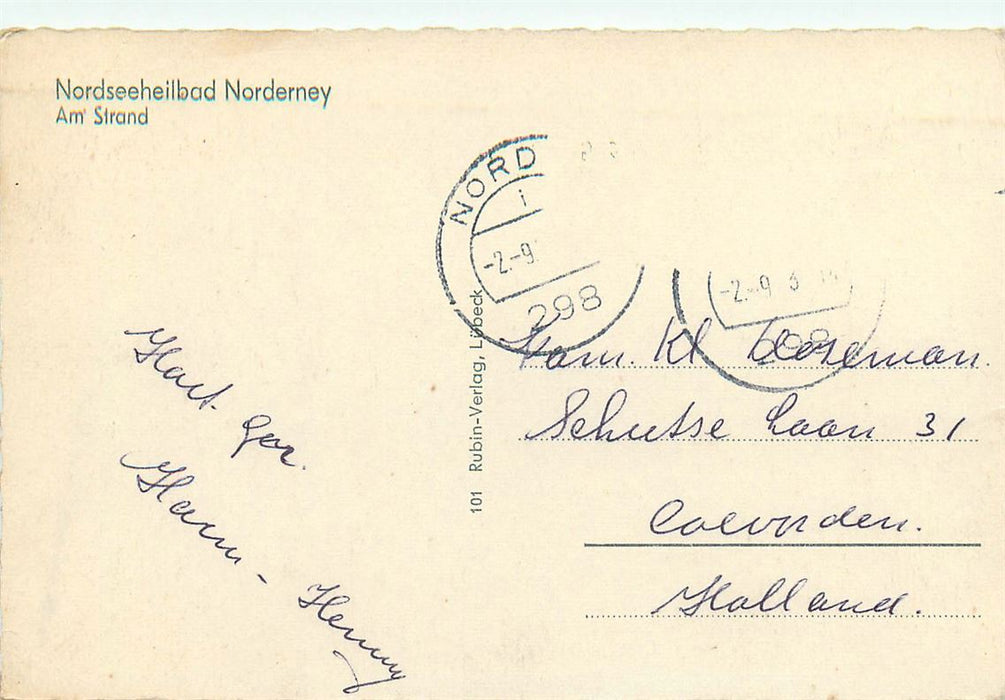 Nordseeheilbad Norderney
Am Strand
NORD
i
-2.-9
298
-2.-9
101 Rubin-Verlag, Lübeck
Hart. gr.
Harm - Henny
Fam. Kl
Schutse Laan 31
Coevorden.
Holland.